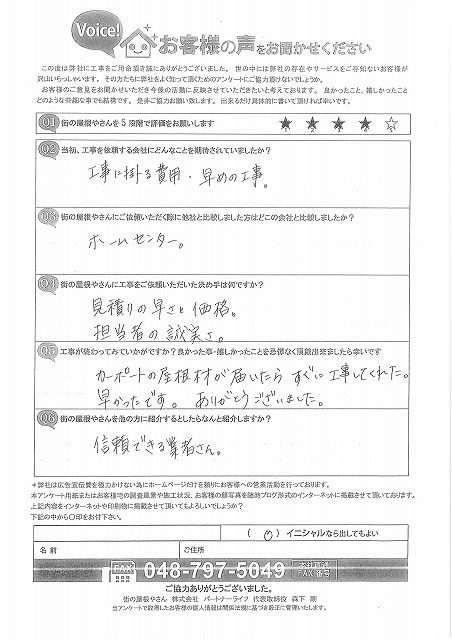 Voice!
お客様の声をお聞かせください
この度は弊社に工事をご用命頂き誠にありがとうございました。世の中には弊社の存在やサービスをご存知ないお客様が
沢山いらっしゃいます。その方たちに弊社をよく知って頂くためのアンケートにご協力頂けないでしょうか。
お客様のご意見をお聞かせいただき今後の活動に反映させていただきたいと考えております。良かったこと、嬉しかったこと
どのような些細な事でも結構です。是非ご協力お願い致します。出来るだけ具体的に書いて頂ければ幸いです。
Q1 街の屋根やさんを5段階で評価をお願いします ★ ★ ★ ★ ☆
Q2 当初、工事を依頼する会社にどんなことを期待されていましたか？
工事に掛る費用・早めの工事。
Q3 街の屋根やさんにご依頼いただく際に他社と比較しました方はどこの会社と比較しましたか？
ホームセンター。
Q4 街の屋根やさんに工事をご依頼いただいた決め手は何ですか？
見積りの早さと価格。
担当者の誠実さ。
Q5 工事が終わってみていかがですか？良かった事・嬉しかったことを忌憚なく頂戴出来ましたら幸いです
カーポートの屋根材が届いたらすぐに工事してくれた。
早かったです。ありがとうございました。
Q6 街の屋根やさんを他の方に紹介するとしたらなんと紹介しますか？
信頼できる業者さん。
＊弊社は広告宣伝費を極力かけない為にホームページだけを頼りにお客様への営業活動を行っております。
本アンケート用紙またはお客様宅の調査風景や施工状況、お客様の顔写真を随時ブログ形式のインターネットに掲載させて頂いております。
上記内容をインターネットや印刷物に掲載させて頂いてもよろしいでしょうか？
下記の中から〇印をお付下さい。
（ 〇 ）イニシャルなら出してもよい
名前 ご住所
FAX 048-797-5049 本社直通 FAX 番号
ご協力ありがとうございました。
街の屋根やさん 株式会社 パートナーライフ 代表取締役 森下 剛
当アンケートで取得したお客様の個人情報は関係法規に基づき厳正に管理いたします。